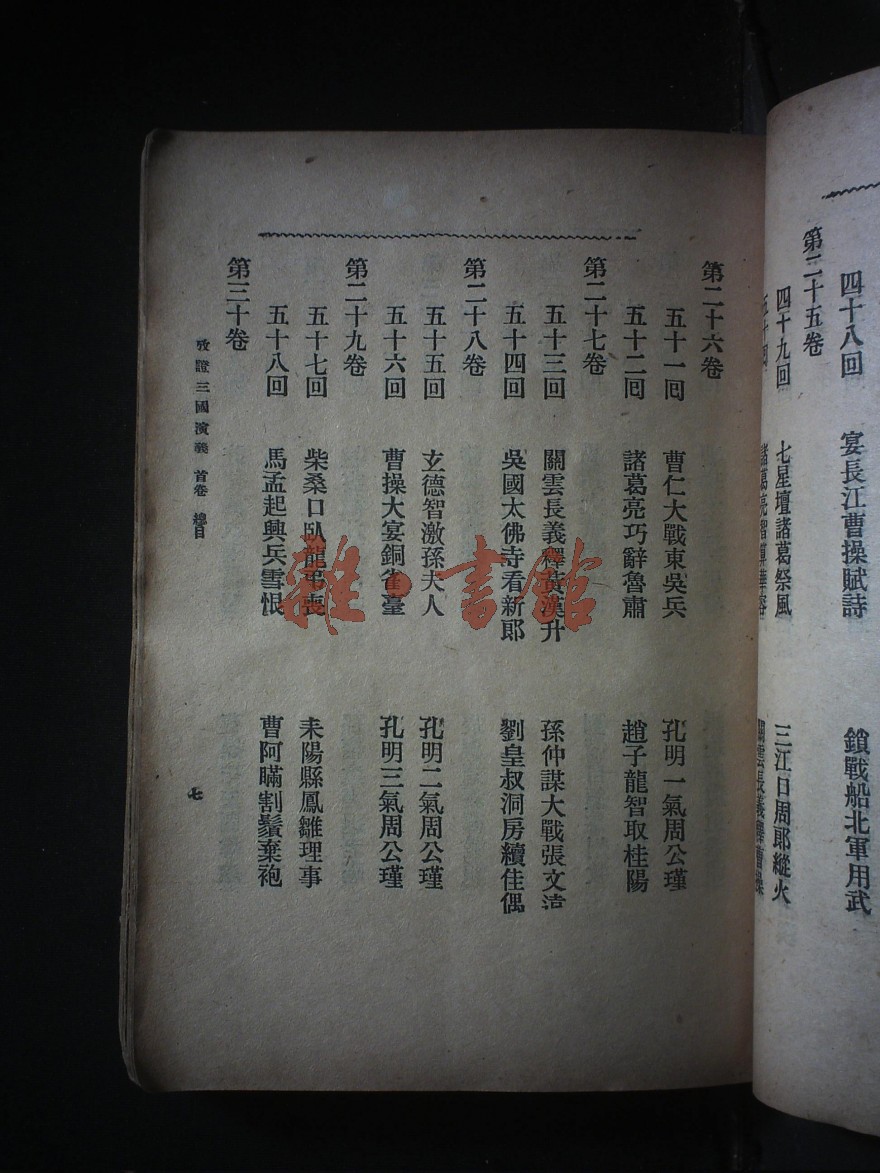 四十八回 宴長江曹操賦詩 鎖戰船北軍用武
第二十五卷
四十九回 七星壇諸葛祭風 三江口周郎縱火
五十回 諸葛亮智算華容 關雲長義釋曹操
第二十六卷
五十一回 曹仁大戰東吳兵 孔明一氣周公瑾
五十二回 諸葛亮巧辭魯肅 趙子龍智取桂陽
第二十七卷
五十三回 關雲長義釋黃漢升 孫仲謀大戰張文遠
五十四回 吳國太佛寺看新郎 劉皇叔洞房續佳偶
第二十八卷
五十五回 玄德智激孫夫人 孔明二氣周公瑾
五十六回 曹操大宴銅雀臺 孔明三氣周公瑾
第二十九卷
五十七回 柴桑口臥龍弔喪 耒陽縣鳳雛理事
五十八回 馬孟起興兵雪恨 曹阿瞞割鬚棄袍
第三十卷
攷證三國演義 首卷 總目 七
雜·書館